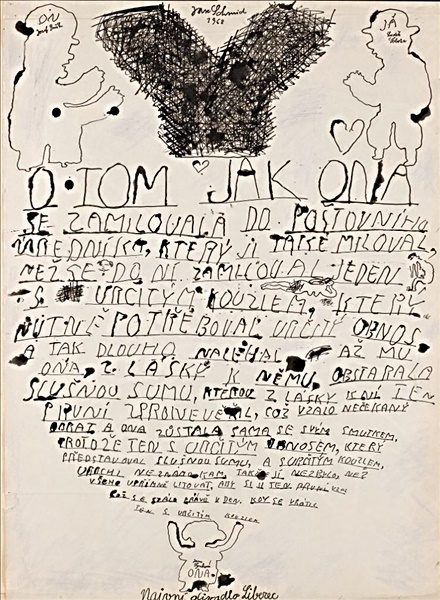 Jan Schmid
1968
ON
JÁ
O TOM JAK ONA
SE ZAMILOVALA DO POŠTOVNÍHO
ÚŘEDNÍKA, KTERÝ JI TAKÉ MILOVAL,
NEŽ SE DO NÍ ZAMILOVAL JEDEN
S URČITÝM KOUZLEM, KTERÝ
NUTNĚ POTŘEBOVAL URČITÝ OBNOS.
A TAK DLOUHO NALÉHAL AŽ MU
ONA, Z LÁSKY K NĚMU, OBSTARALA
SLUŠNOU SUMU, KTEROU Z LÁSKY K NÍ TEN
PRVNÍ ZPRONEVĚŘIL, COŽ VZALO NEČEKANÝ
OBRAT A ONA ZŮSTALA SAMA SE SVÝM SMUTKEM,
PROTOŽE TEN S URČITÝM OBNOSEM, KTERÝ
PŘEDSTAVOVAL SLUŠNOU SUMU, A S URČITÝM KOUZLEM,
UPRCHL NEZNÁMO KAM, TAKŽE JÍ NEZBYLO, NEŽ
VŠEHO UPŘÍMNĚ LITOVAT, ABY SI JI TEN PRVNÍ VZAL
COŽ SE STALO PRÁVĚ V DEN, KDY SE VRÁTIL
TEN S URČITÝM KOUZLEM
ONA
Naivní divadlo Liberec